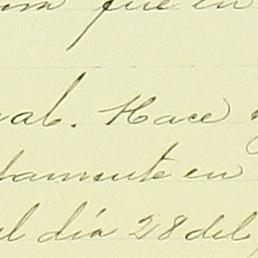 fue en
al. Hace
damente en
el día 28 del